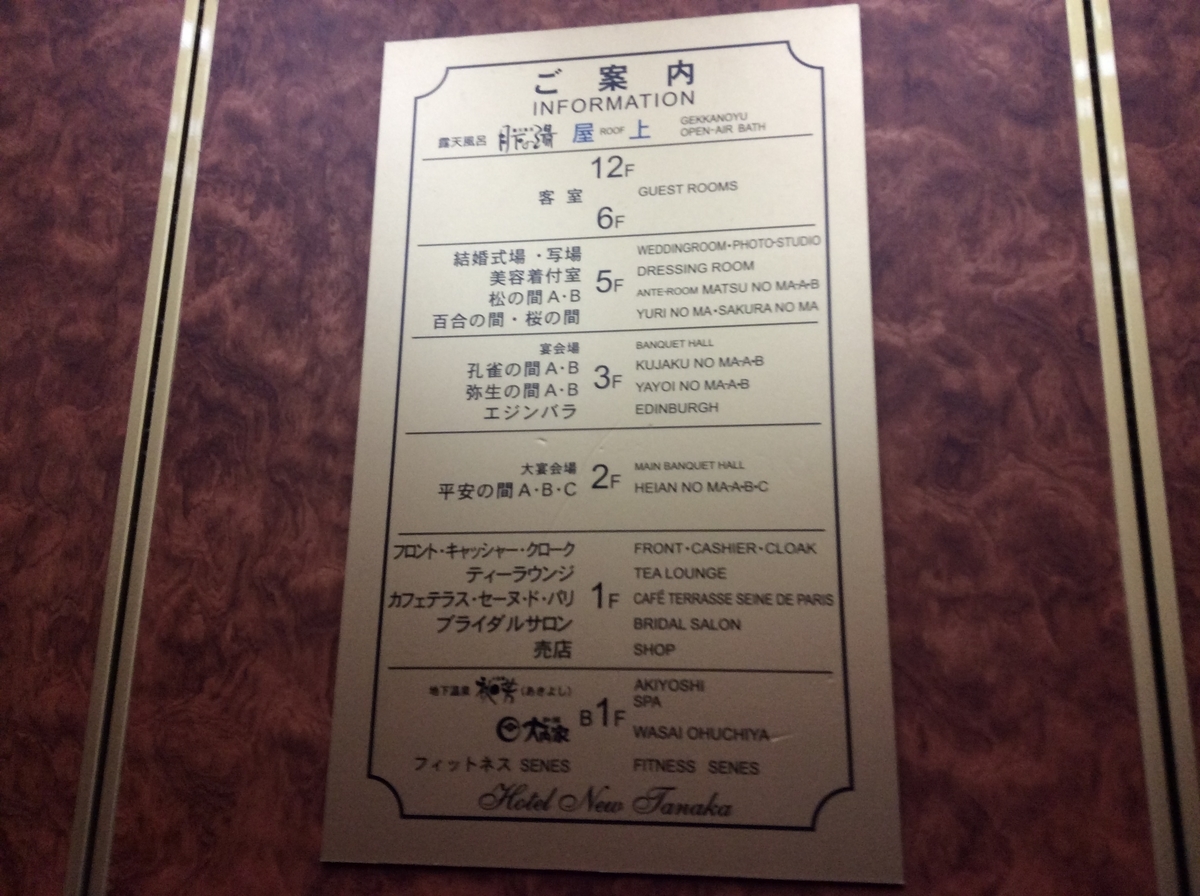 ご案内
INFORMATION
露天風呂 月下の湯 屋 ROOF 上 GEKKANOYU OPEN-AIR BATH
12F
客室 GUEST ROOMS
6F
結婚式場・写場 WEDDINGROOM・PHOTO-STUDIO
美容着付室 5F DRESSING ROOM
松の間A・B ANTE-ROOM MATSU NO MA-A-B
百合の間・桜の間 YURI NO MA・SAKURA NO MA
宴会場 BANQUET HALL
孔雀の間A・B 3F KUJAKU NO MA-A-B
弥生の間A・B YAYOI NO MA-A-B
エジンバラ EDINBURGH
大宴会場 2F MAIN BANQUET HALL
平安の間A・B・C HEIAN NO MA-A-B-C
フロント・キャッシャー・クローク FRONT・CASHIER・CLOAK
ティーラウンジ TEA LOUNGE
カフェテラス・セーヌ・ド・パリ 1F CAFÉ TERRASSE SEINE DE PARIS
ブライダルサロン BRIDAL SALON
売店 SHOP
地下温泉 (あきよし) AKIYOSHI SPA
B1F WASAI OHUCHIYA
フィットネス SENES FITNESS SENES
Hotel New Tanaka